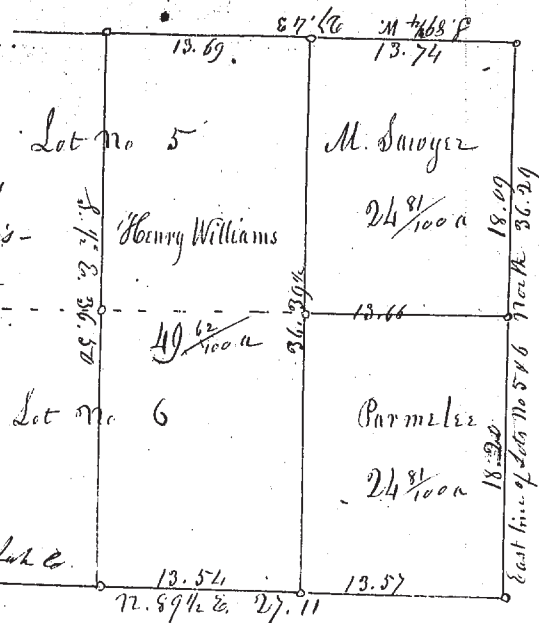 S. 89¾ W. 27.43
13.69
13.74
Lot No 5
M. Sawyer
24 81/100 a
18.09
North 36.29
S. ½° E. 36.50
Henry Williams
49 62/100 a
36.39½
13.66
Lot No 6
Parmelee
24 81/100 a
18.20
East line of Lots No 5 & 6
13.54
13.57
N. 89½ E. 27.11